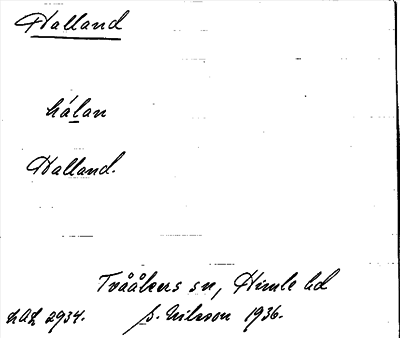 Halland
hálan
Halland.
Tvååkers sn, Himle hd
LAL 2934. S. Nilsson 1936.